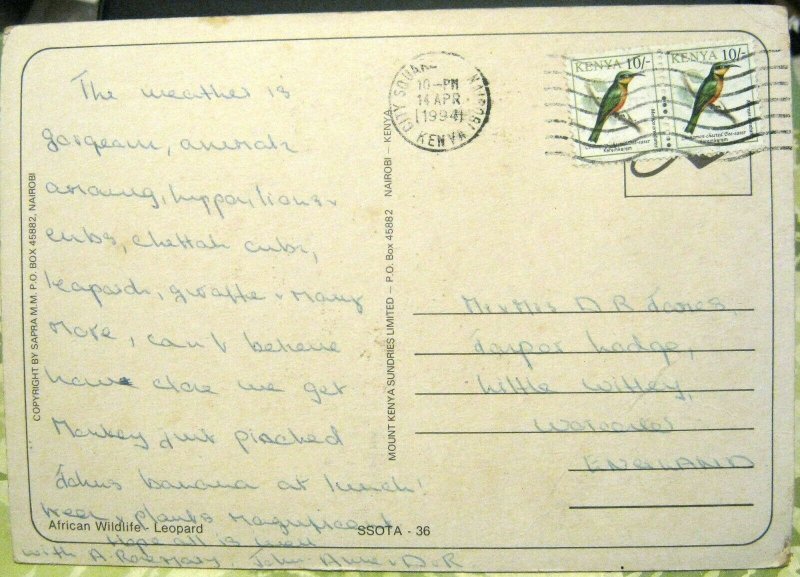 The weather is
gorgeous, animals
amazing, hippo, lions +
cubs, chettah cubs,
leopards, giraffe + many
more, can't believe
how close we get
Monkey just pinched
Johns banana at lunch!
+ plants magnificent
Hope all is well
with A. Rosemary. John Anne + D R
African Wildlife - Leopard
COPYRIGHT BY SAPRA M.M. P.O. BOX 45882, NAIROBI
SSOTA - 36
MOUNT KENYA SUNDRIES LIMITED - P.O. Box 45882 NAIROBI - KENYA
CITY SQUARE NAIROBI
10-PM
14 APR
1994
KENYA
KENYA 10/-
KENYA 10/-
Mr + Mrs D R Jones,
Lodge,
Little Witley,
Worcester
ENGLAND